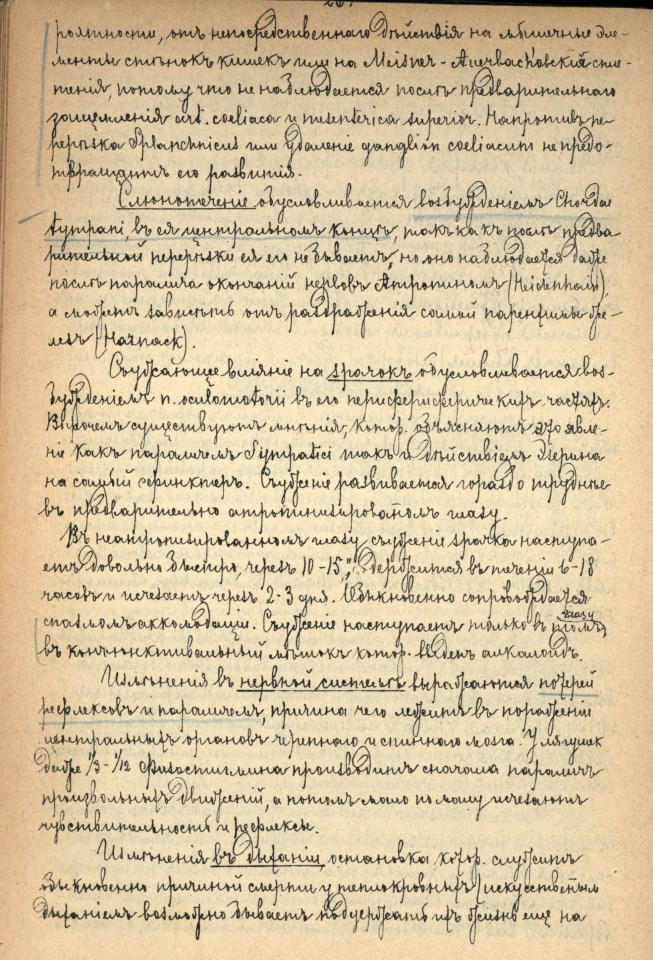 роятности, отъ непосредственнаго дѣйствія на мышечные эле-
менты стѣнокъ кишекъ или на Meisner-Auerbach'овскій спле-
тенія, потому что не наблюдается послѣ предварительнаго
защемленія art. coeliaca и mesenterica superior. Напротивъ пе-
рерѣзка Splanchnicus или удаленіе ganglion coeliacum не предо-
твращаютъ его развитія.
Слюнотеченіе обусловливается возбужденіемъ Chordae
tympani, въ ея центральномъ концѣ, такъ какъ послѣ предва-
рительной перерѣзки ея его не бываетъ, но оно наблюдается даже
послѣ паралича окончаній нервовъ Атропиномъ (Heidenhain),
а можетъ зависѣть отъ раздраженія самой паренхимы же-
лезъ (Harnack).
Съуживающее вліяніе на зрачокъ обусловливается воз-
бужденіемъ n. oculomotorii въ его периферическихъ частяхъ.
Впрочемъ существуютъ мнѣнія, котор. объясняютъ это явле-
ніе какъ параличемъ Sympatici такъ и дѣйствіемъ Эзерина
на самый сфинктеръ. Съуженіе развивается гораздо труднѣе
въ предварительно атропинизированномъ глазу.
Въ неатропизированномъ глазу съуженіе зрачка наступа-
етъ довольно быстро, черезъ 10-15", держится въ теченіи 6-18
часовъ и исчезаетъ черезъ 2-3 дня. Обыкновенно сопровождается
спазмомъ аккомодаціи. Съуженіе наступаетъ только въ томъ глазу
въ конъюнктивальный мѣшокъ котор. введенъ алкалоидъ.
Измѣненія въ нервной системѣ выражаются потерей
рефлексовъ и параличемъ, причина чего лежитъ въ пораженіи
центральныхъ органовъ черепнаго и спиннаго мозга. У лягушек
даже 1/3-1/12 Физостигмина производитъ сначала параличъ
произвольныхъ движеній, а потомъ мало по малу исчезаютъ
чувствительность и рефлексы.
Измѣненія въ дыханіи, остановка котор. служитъ
обыкновенно причиной смерти у теплокровныхъ (искусственнымъ
дыханіемъ возможно бываетъ поддержать ихъ жизнь еще на